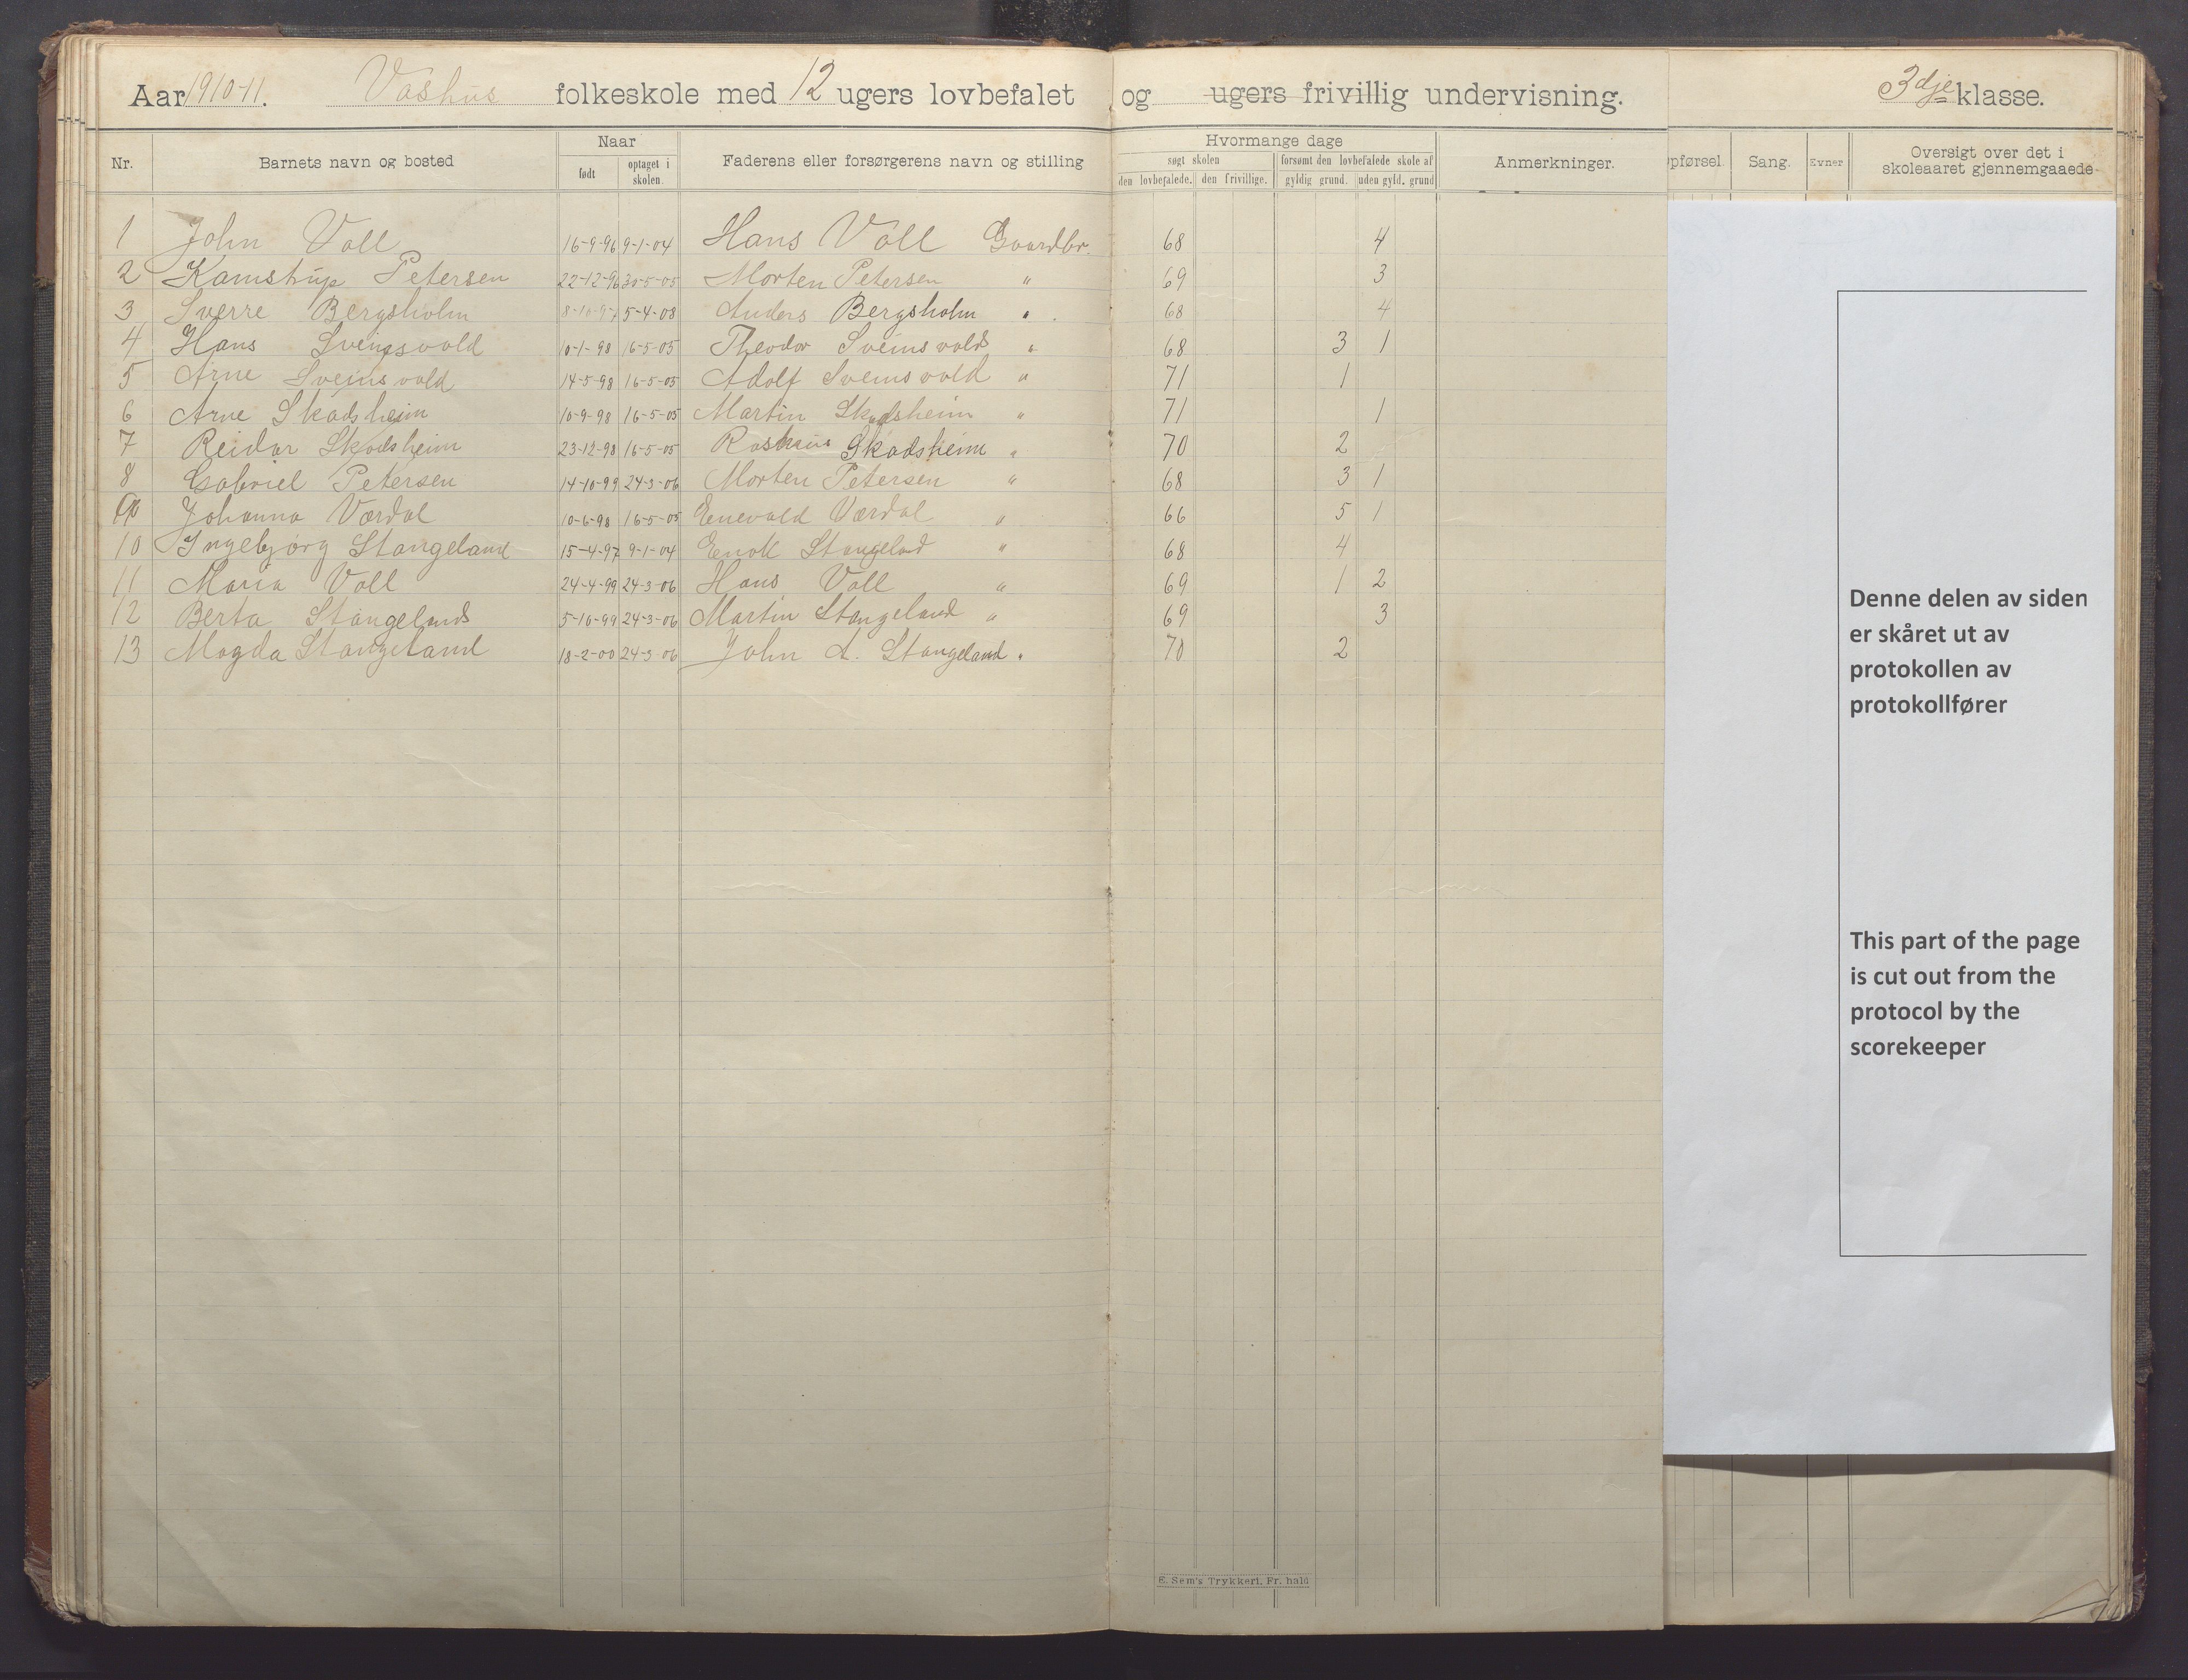 Aar 1910-11. Vashus folkeskole med 12 ugers lovbefalet og ugers frivillig undervisning. 3dje klasse.
Nr. Barnets navn og bosted Naar født optaget i skolen. Faderens eller forsørgerens navn og stilling Hvormange dage søgt skolen den lovbefalede. den frivillige. forsømt den lovbefalede skole af gyldig grund. uden gyld. grund Anmerkninger. pførsel. Sang. Evner Oversigt over det i skoleaaret gjennemgaaede
1 John Voll 16-9-96 9-1-04 Hans Voll Gaardbr. 68 4
2 Kamstrup Petersen 22-12-96 30-5-05 Morten Petersen " 69 3
3 Sverre Bergsholm 8-10-97 5-4-08 Anders Bergsholm " 68 4
4 Hans Sveinsvold 10-1-98 16-5-05 Theodor Sveinsvold " 68 3 1
5 Arne Sveinsvold 14-5-98 16-5-05 Adolf Sveinsvold " 71 1
6 Arne Skadsheim 10-9-98 16-5-05 Martin Skadsheim " 71 1
7 Reidar Skadsheim 23-12-98 16-5-05 Rasmus Skadsheim " 70 2
8 Gabriel Petersen 14-10-99 24-3-06 Morten Petersen " 68 3 1
9 Johanna Værdal 10-6-98 16-5-05 Enevald Værdal " 66 5 1
10 Ingebjørg Stangeland 15-4-97 9-1-04 Enok Stangelad " 68 4
11 Maria Voll 24-4-99 24-3-06 Hans Voll " 69 1 2
12 Berta Stangeland 5-10-99 24-3-06 Martin Stangeland " 69 3
13 Magda Stangeland 18-2-00 24-3-06 John A. Stangeland " 70 2
Denne delen av siden
er skåret ut av
protokollen av
protokollfører
This part of the page
is cut out from the
protocol by the
scorekeeper
E. Sem's Trykkeri, Fr. hald